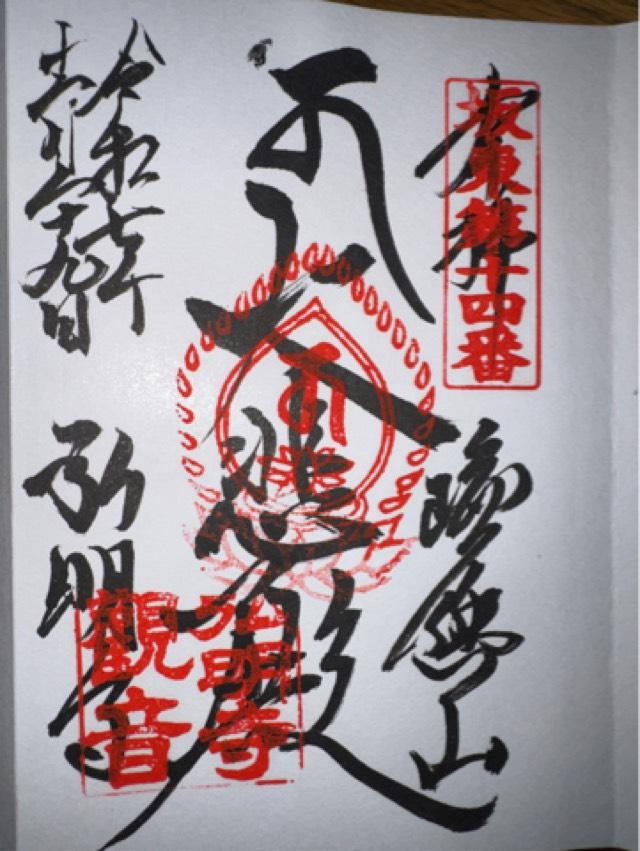 奉拝
坂東第十四番
瑞應山
大悲殿
令和七年
十九日
弘明寺
弘明寺
觀音